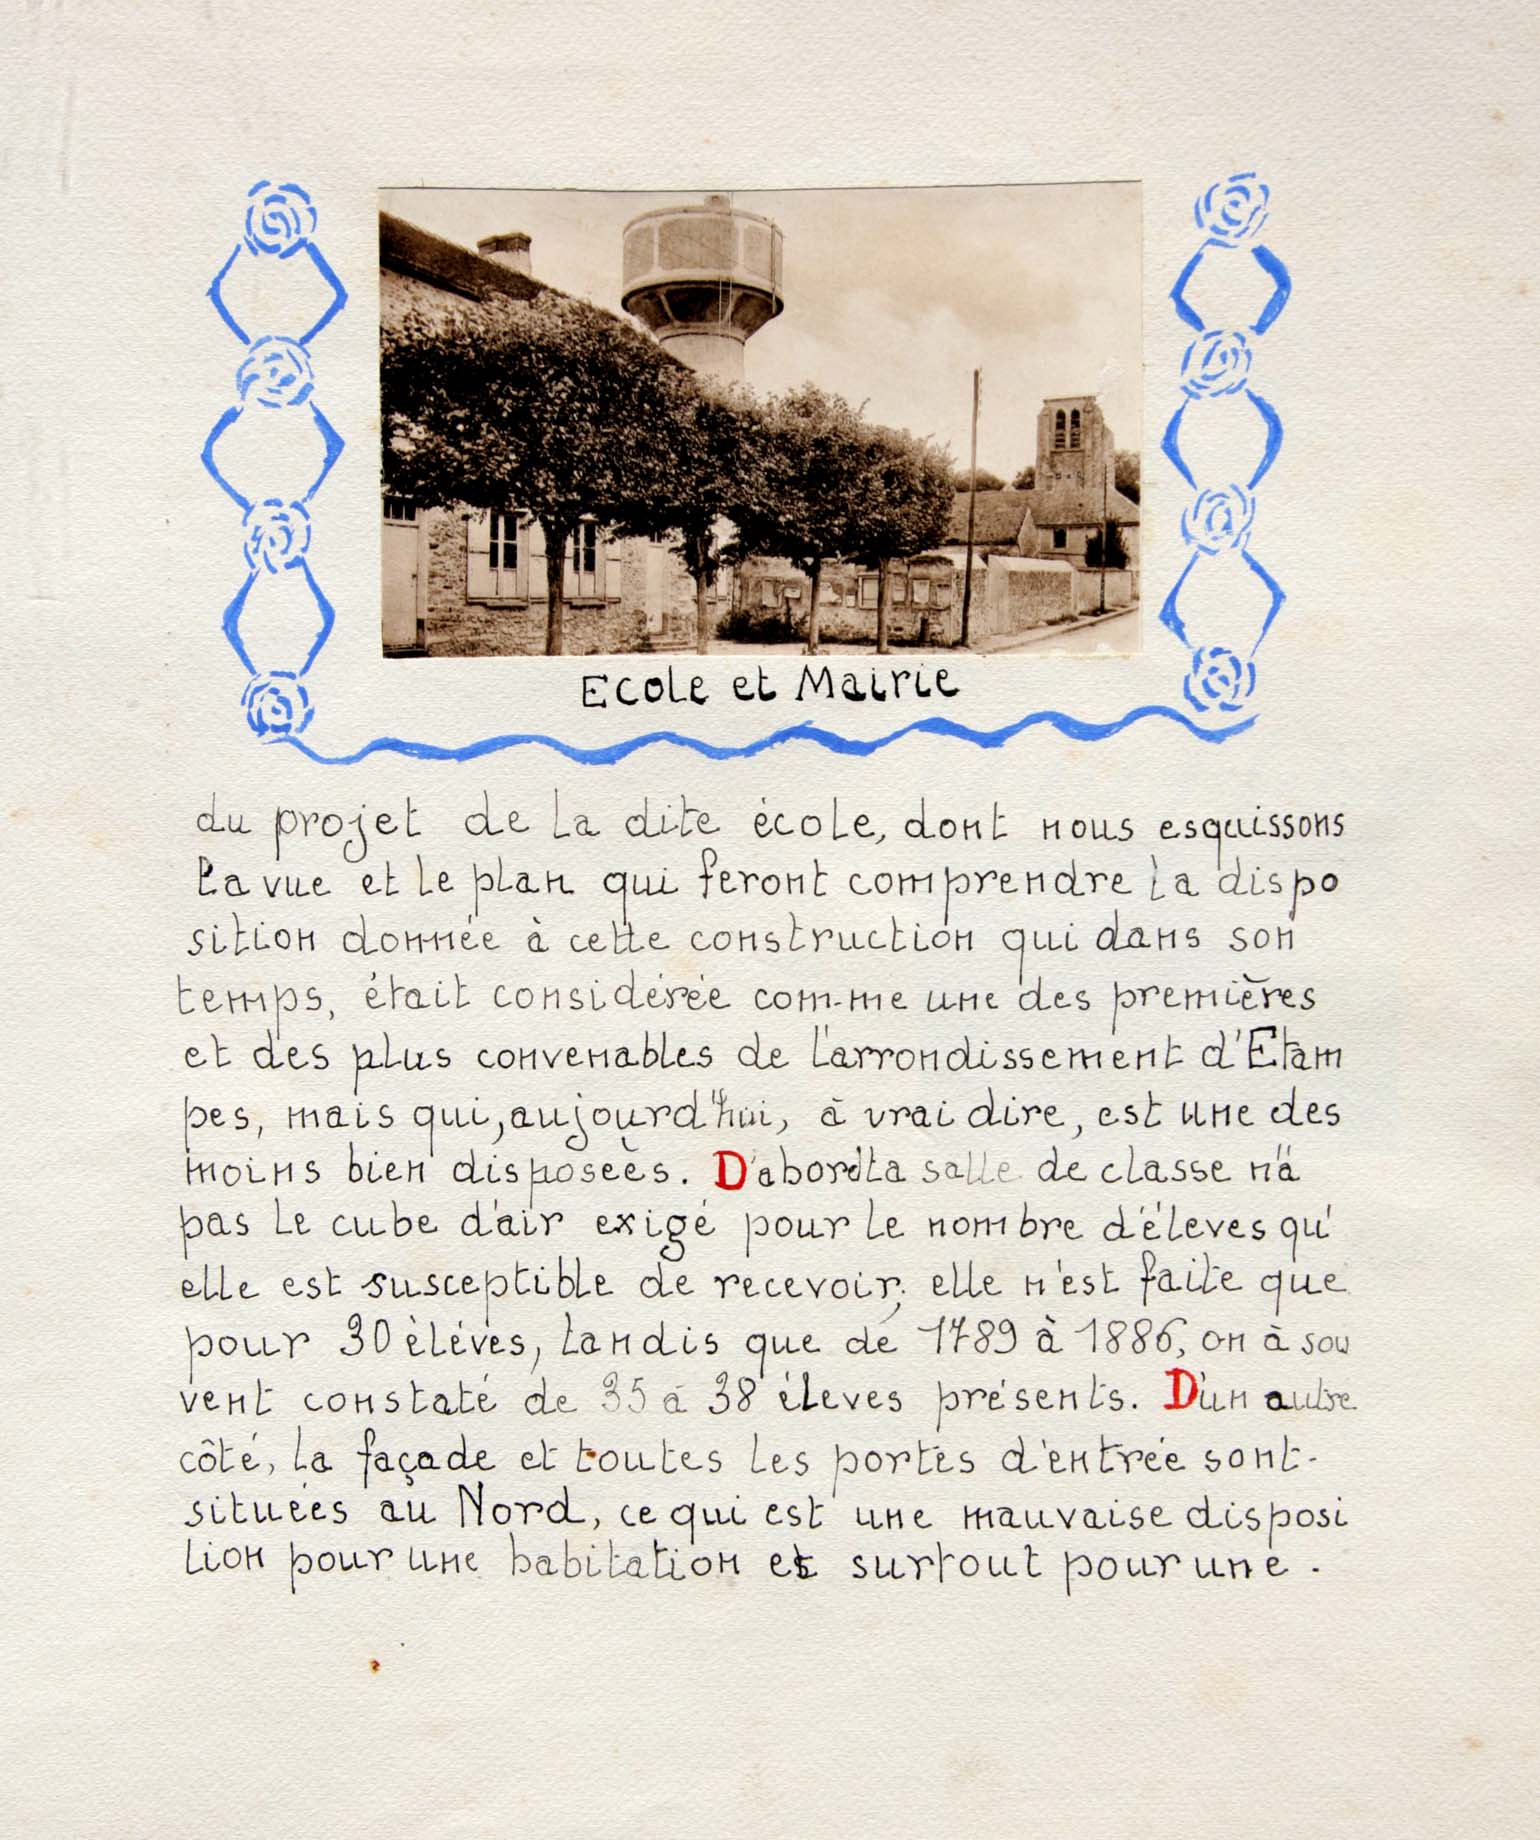 Ecole et Mairie
du projet de la dite école, dont nous esquissons
la vue et le plan qui feront comprendre la dispo
sition donnée à cette construction qui dans son
temps, était considérée com-me une des premières
et des plus convenables de l'arrondissement d'Etam
pes, mais qui, aujourd'hui, à vrai dire, est une des
moins bien disposeès. D'abord la salle de classe n'a
pas le cube d'air exigé pour le nombre d'éleves qu'
elle est susceptible de recevoir; elle n'est faite que
pour 30 èléves, tandis que de 1789 à 1886, on à sou
vent constaté de 35 à 38 éleves présents. D'un autre
côté, la façade et toutes les portes d'entrée sont-
situées au Nord, ce qui est une mauvaise disposi
tion pour une habitation et surtout pour une .